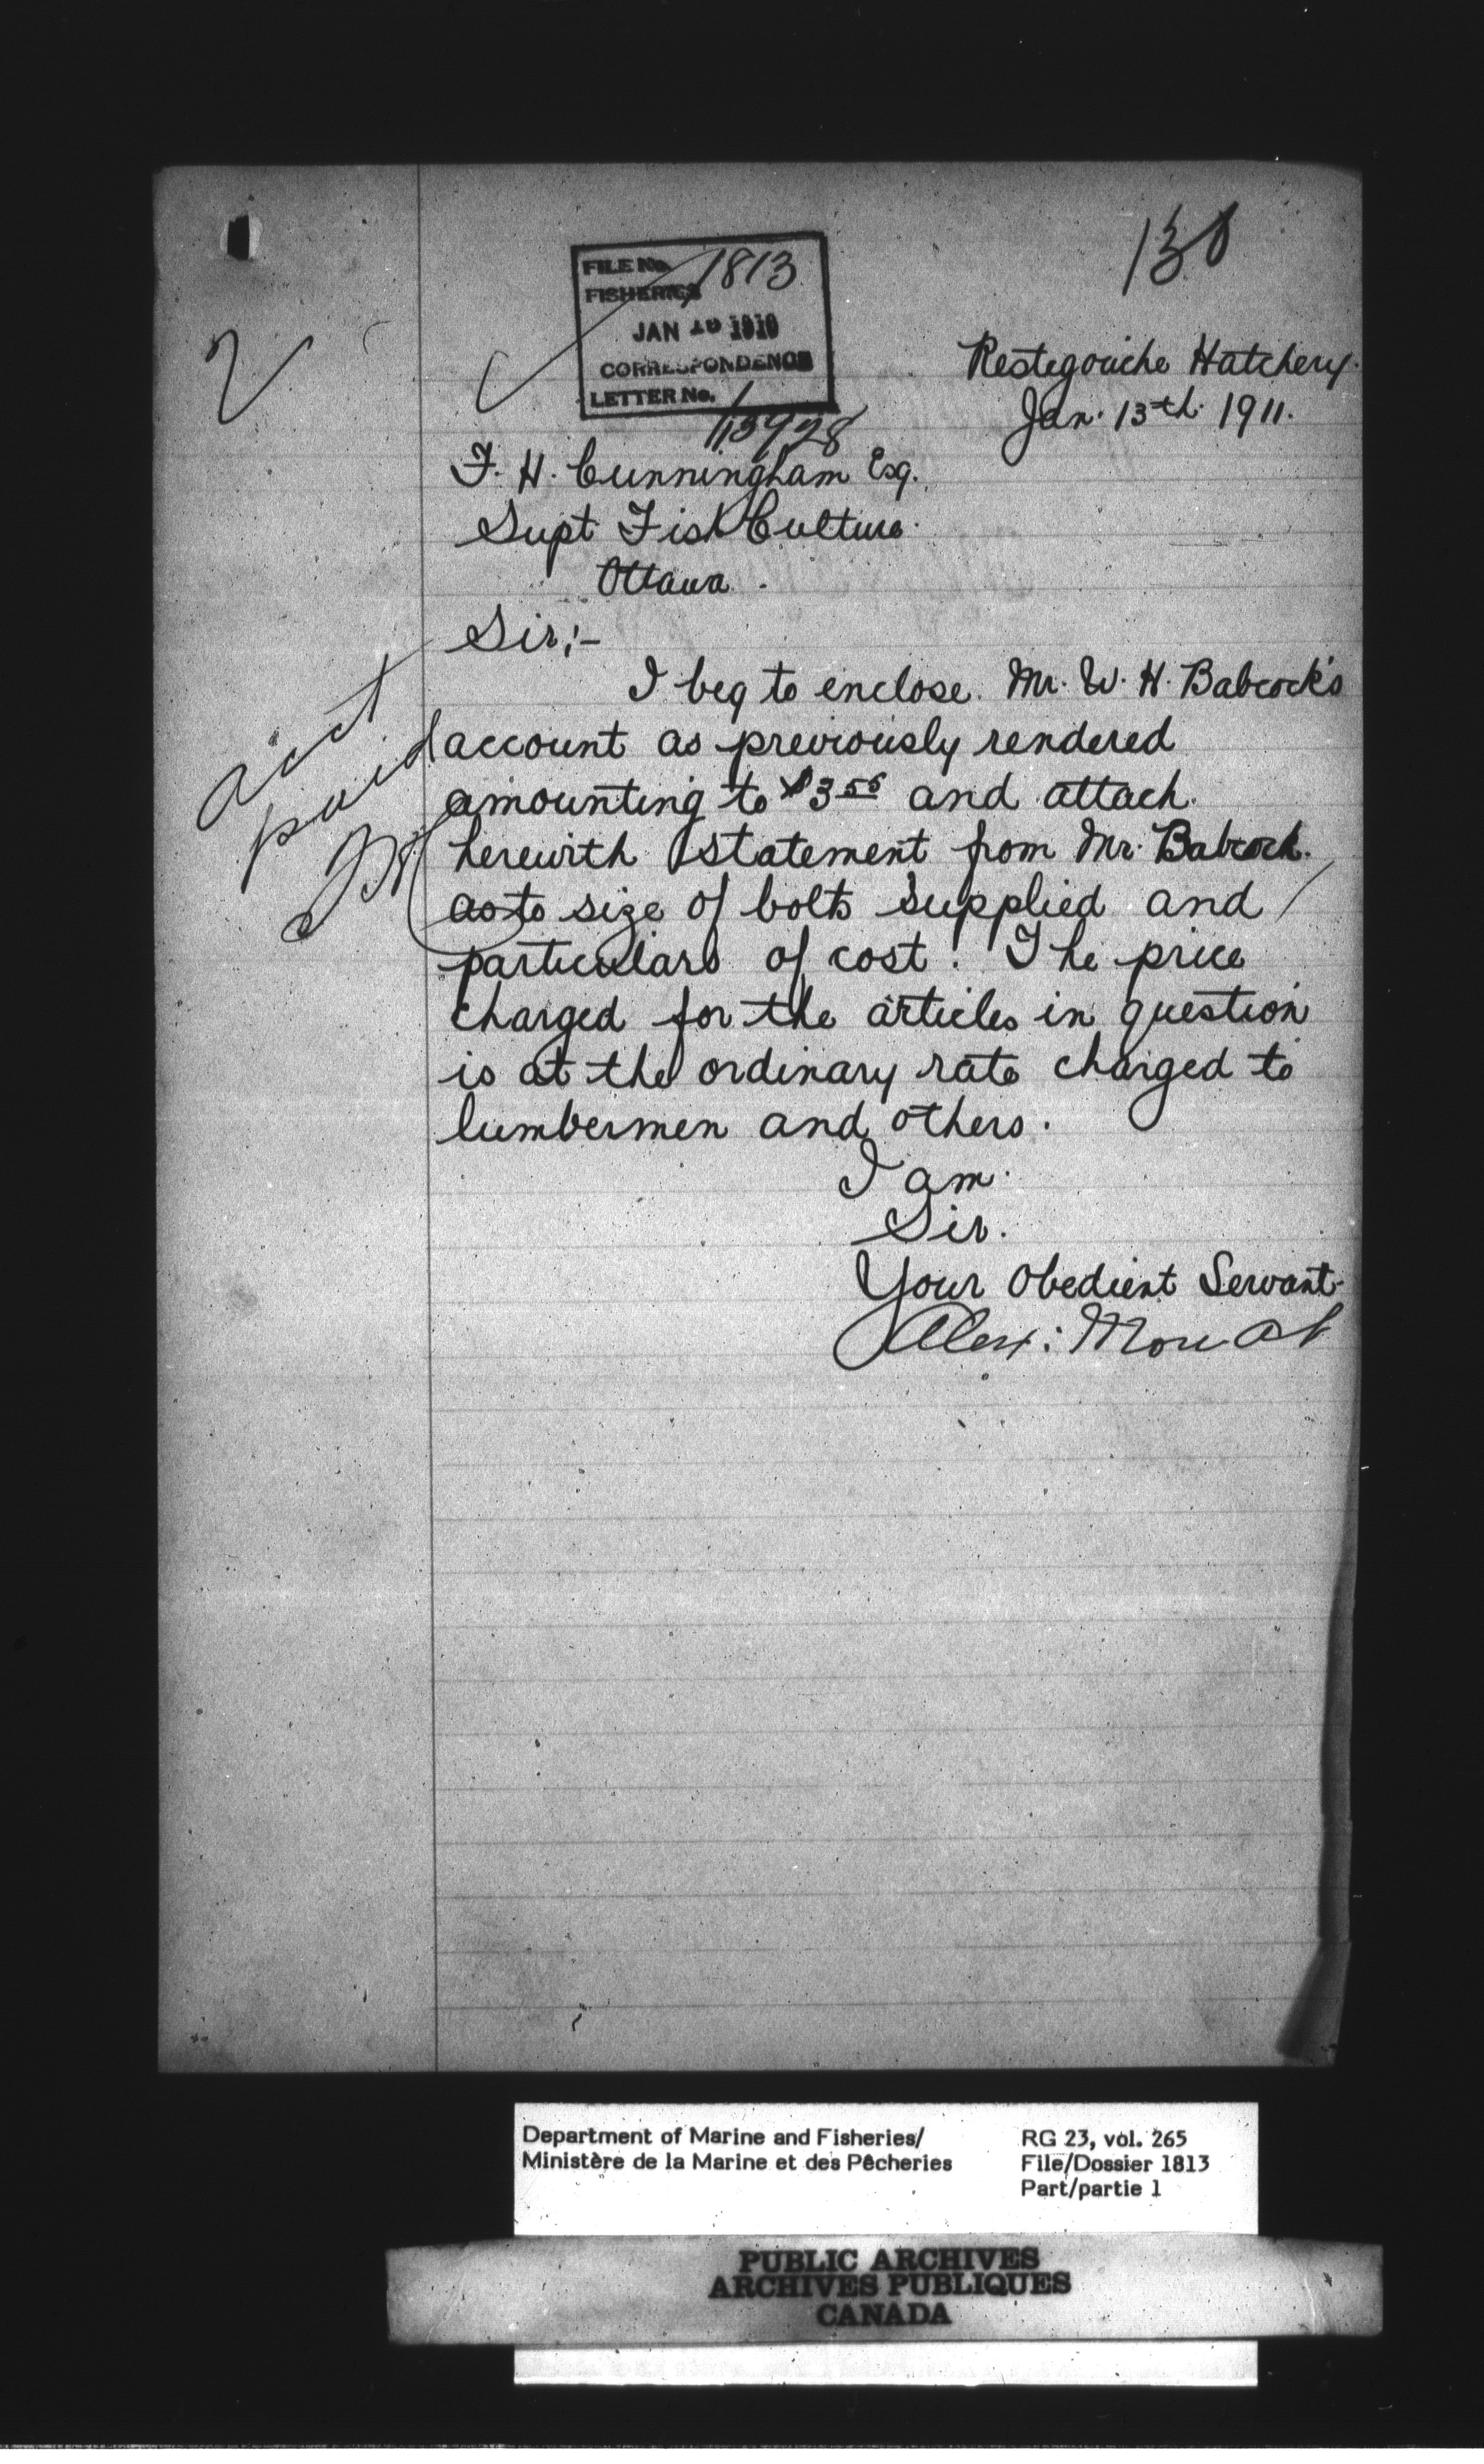 138
FILE No. 1813
FISHERIES
JAN 1910
CORRESPONDENCE
LETTER No.
Restegouche Hatchery.
Jan. 13th. 1911.
F. H. Cunningham Esq.
Supt Fish Culture.
Ottawa.
Sir:-
I beg to enclose. Mr. W. H. Babcock's
account as previously rendered
amounting to $3 and attach.
herewith statement from Mr. Babcock.
as to size of bolts supplied and
particulars of cost. The price
charged for the articles in question
is at the ordinary rate charged to
lumbermen and others.
I am.
Sir.
Your Obedient Servant.
Alex: Mowat
acct
paid
Department of Marine and Fisheries/
Ministère de la Marine et des Pêcheries
RG 23, vol. 265
File/Dossier 1813
Part/partie 1
PUBLIC ARCHIVES
ARCHIVES PUBLIQUES
CANADA